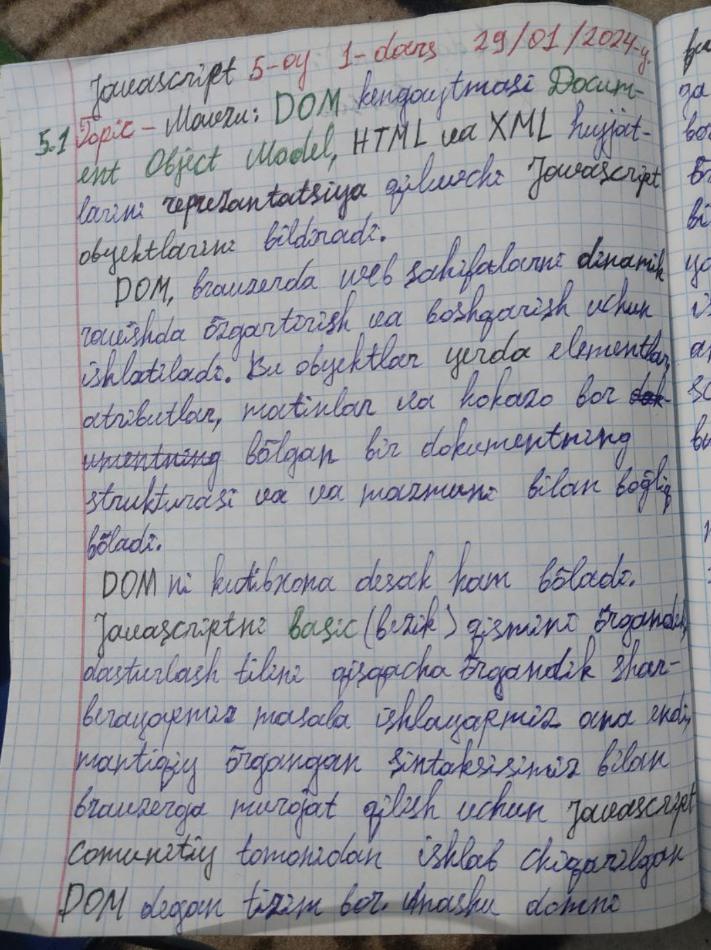 Javascript 5-oy 1-dars 29/01/2024-y.
5.1 Topic - Mavzu: DOM kengaytmasi Docum-
ent Object Model, HTML va XML hujjat-
larini reprezantatsiya qiluvchi Javascript
obyektlarini bildiradi.
DOM, brauzerda web sahifalarni dinamik
ravishda õzgartirish va boshqarish uchun
ishlatiladi. Bu obyektlar yerda elementlar,
atributlar, matinlar va hokazo bor dok-
umentning bõlgan bir dokumentning
strukturasi va va mazmuni bilan bõgliq
bõladi.
DOM ni kutibxona desak ham bõladi.
Javascriptni Basic (bezik) qismini õrgandik,
dasturlash tilini qisqacha õrgandik shar-
berayapmiz masala ishlayapmiz ana endi,
mantiqiy õrgangan sintaksisimiz bilan
brauzerga murojat qilish uchun Javascript
comunitiy tomonidan ishlab chiqarilgan
DOM degan tizim bor. Anashu domni